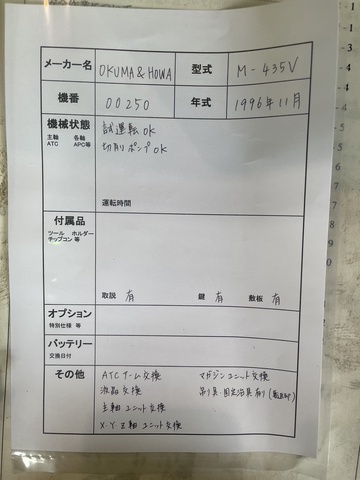 メーカー名 OKUMA & HOWA 型式 M-435V
機番 00250 年式 1996年11月
機械状態 試運転OK
主軸 各軸 切削ポンプOK
ATC APC等
運転時間
付属品
ツール ホルダー
チップコン 等
取説 有 鍵 有 敷板 有
オプション
特別仕様 等
バッテリー
交換日付
その他 ATCアーム交換 マガジンユニット交換
液晶交換 吊り具・固定治具有り
主軸ユニット交換
X・Y・Z軸ユニット交換